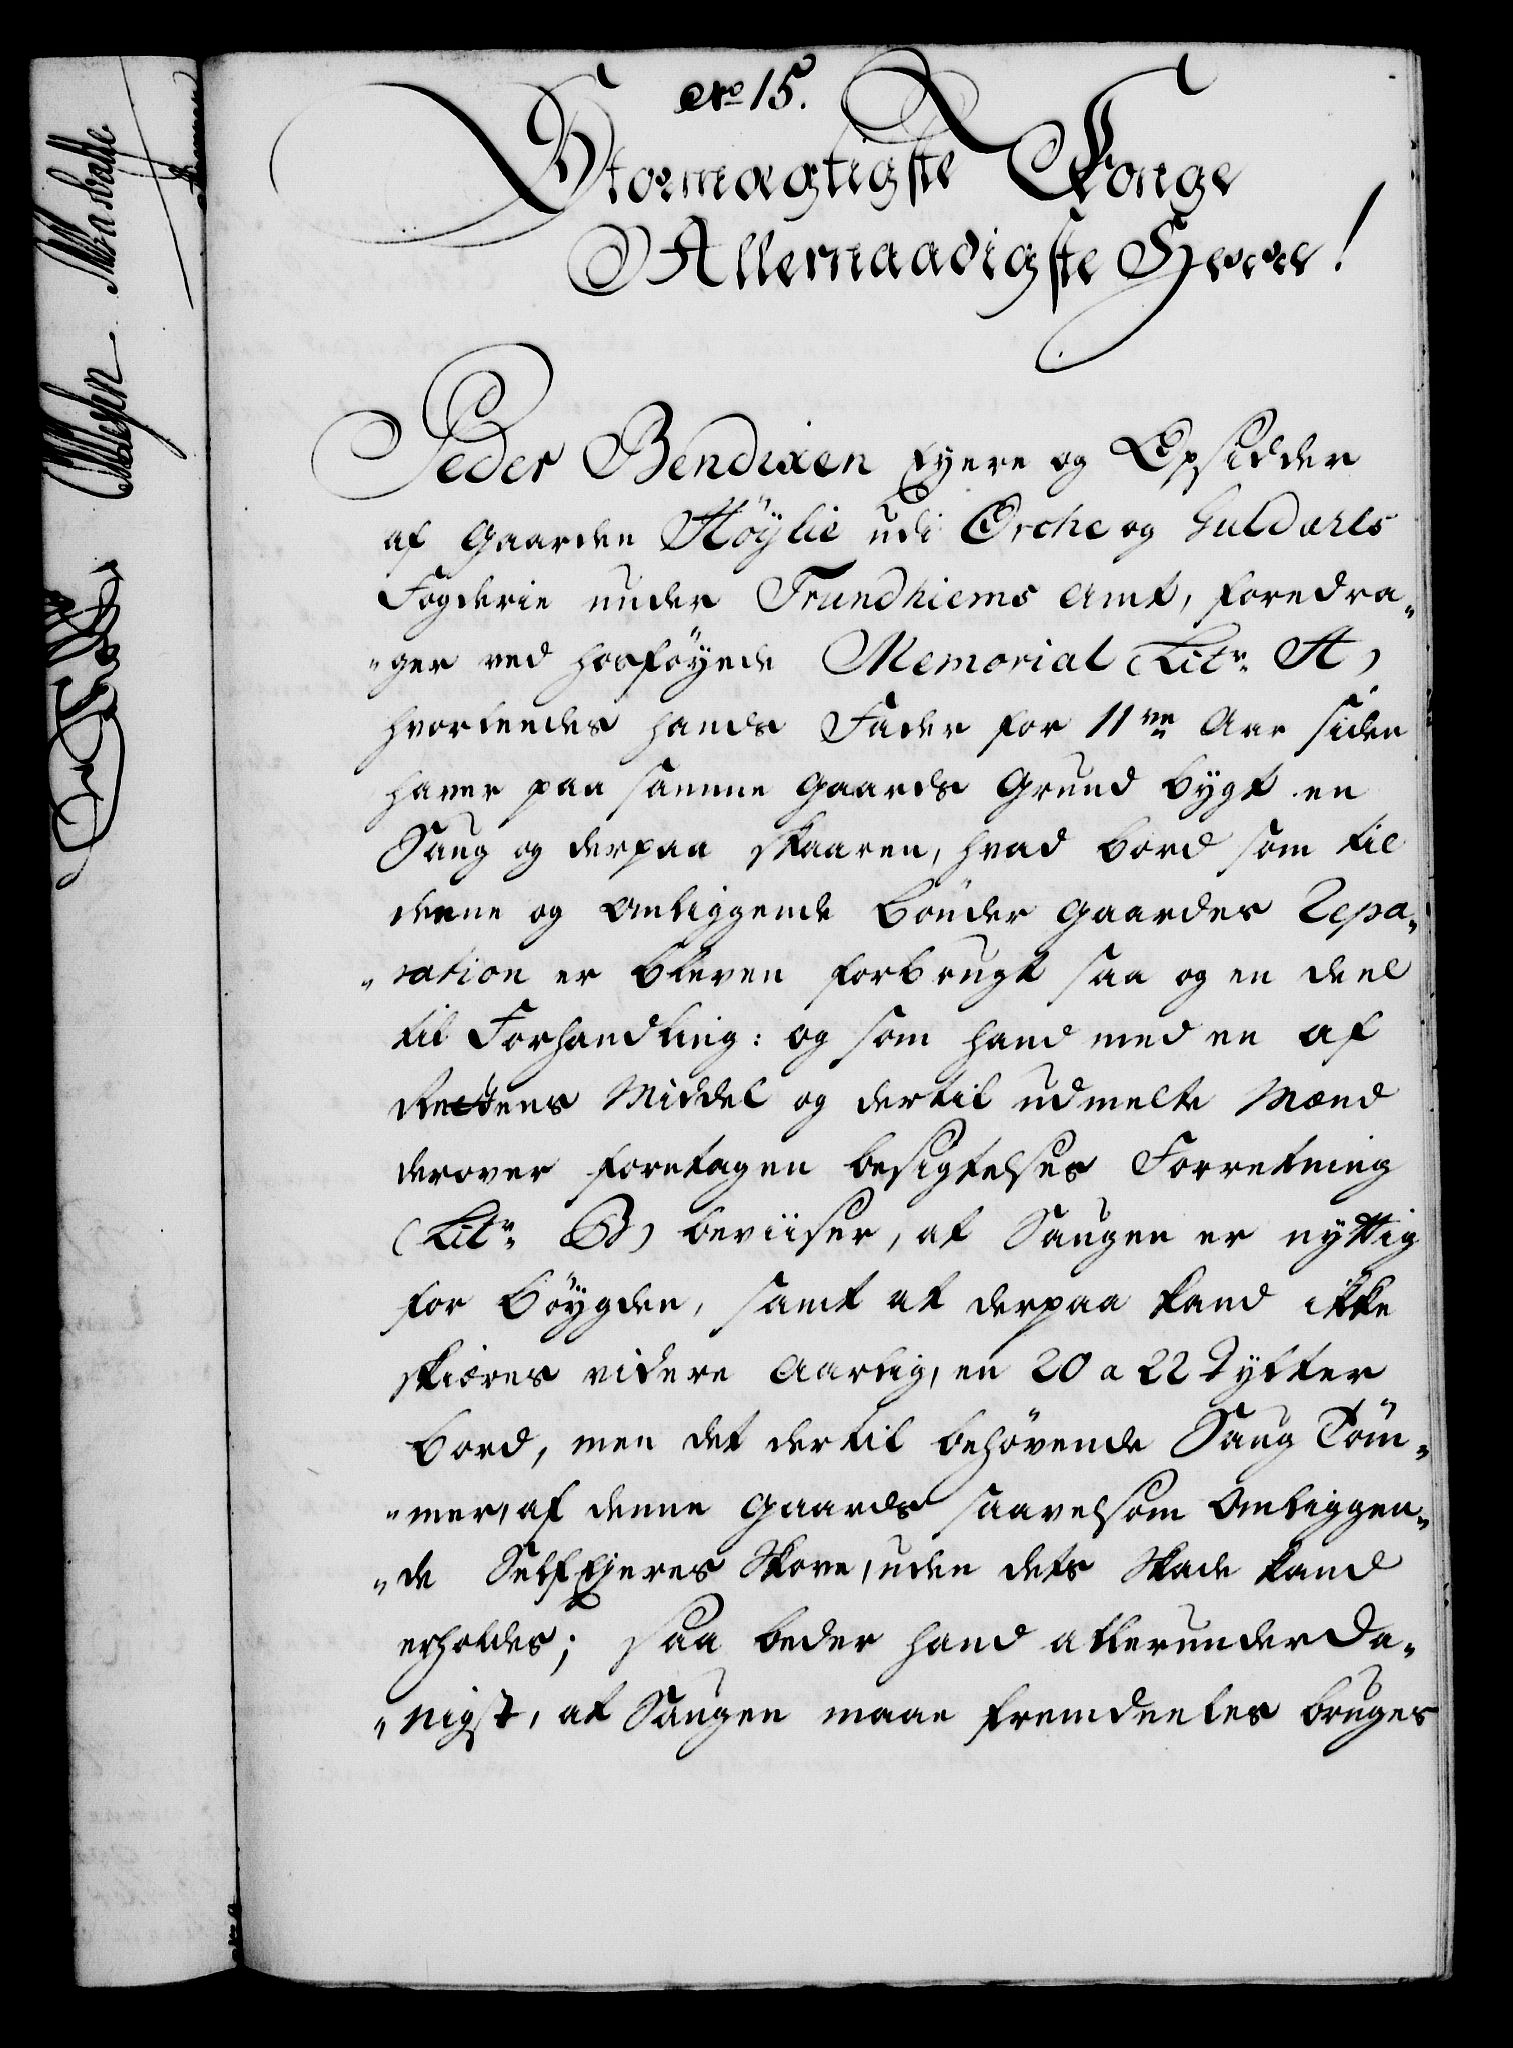 No 15.
Stormægtigste Konge
Allernaadigste Herre!
Peder Bendixen Eyere og Opsidder
af Gaarden Höylie udi Orche og Guldarls
Fogderie under Trundhiems Amt, foredra-
-ger ved hosföyede Memorial (Litr. A)
hvorledes hands Fader for 11ve Aar siden
haver paa samme Gaards Grund bygt en
Saug og derpaa skaaren, hvad Bord som til
denne og omliggende Bönder Gaardes Repa-
-ration er bleven forbrugt saa og en deel
til Forhandling: og som hand med en af
Rettens Middel og dertil udmelte Mænd
derover foretagen besigtelses Forretning
(Litr. B) beviiser, at Saugen er nyttig
for Böygden, samt at derpaa kand ikke
skiæres videre Aarlig, en 20 a 22 Tylter
Bord, men det dertil behövende Saug Töm-
-mer, af denne Gaards saavelsom omliggen-
-de Self Ejeres Skove, uden dets Skade kand
erholdes; saa beder hand allerunderda-
-nigst, at Saugen maae fremdeeles bruges